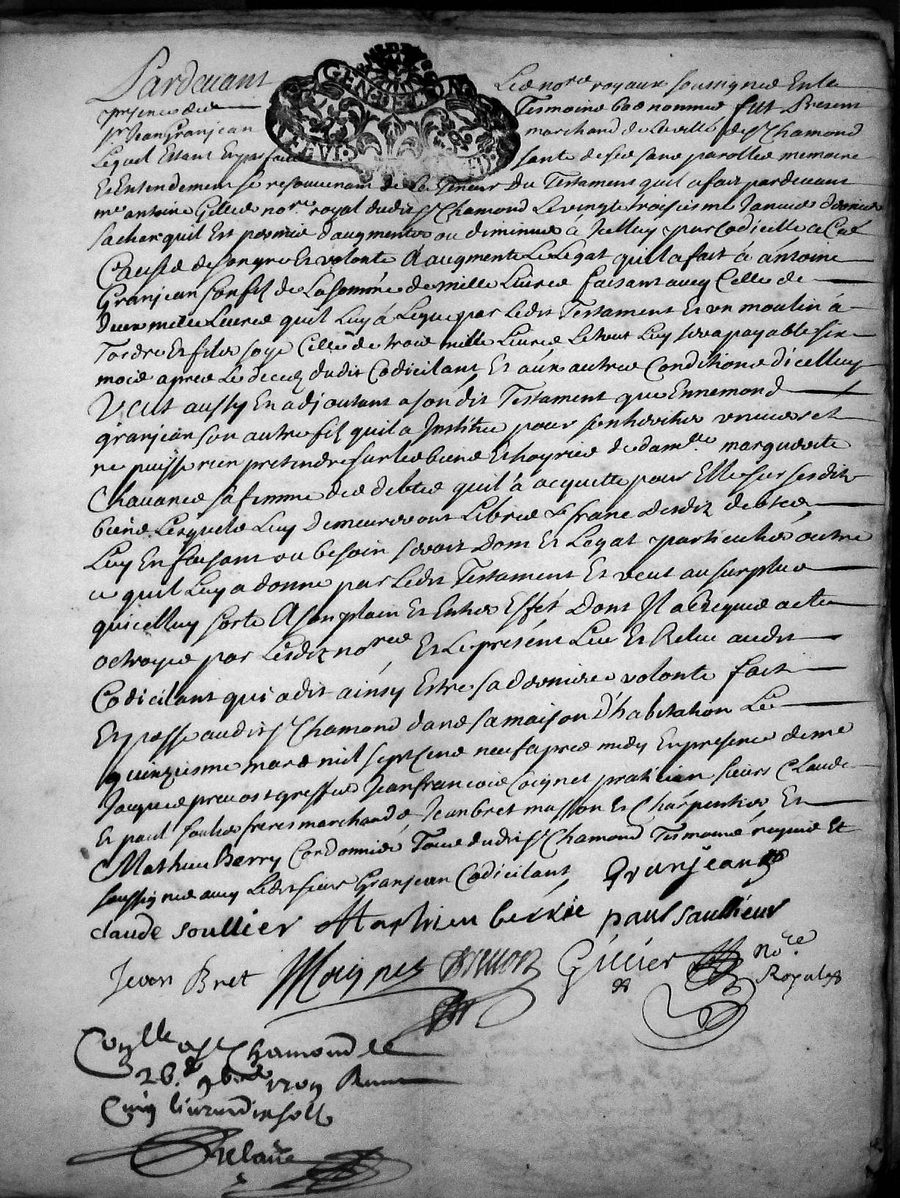 Pardevant Les no.re royaux soussignes En la
presence des Tesmoins bas nommes fut Present
s.r Jean Granjean marchand de la ville de S.t Chamond
Lequel Estant En parfaite sante de ses sans parolles memoire
Et Entendement se resouvenant de la Teneur du Testament quil a fait pardevant
m.e antoine Gillier no.re royal dudit S.t Chamond Le vingt troisiesme Janvier dernier
sachant quil Est permis d'augmenter ou diminuer à Icelluy par codicille a Cet
Cause de son gre Et volonte A augmente Le Legat quil a fait à antoine
Granjean son fils de La somme de mille Livres faisant avec Celle de
deux mille Livres quil Luy à Legue par Ledit Testament Et un moulin à
Tordre Et filer soye Celle de trois mille Livres Le tout Luy sera payable six
mois apres Le deces dudit Codicilant Et aux autres Conditions d'icelluy
Veut aussy En adjoutant a son dit Testament que Ennemond
granjean son autre fils quil a Institue pour son heritier universel
ne puisse rien pretendre sur les biens Et hoyries de dam.lle marguerite
Chavanes sa femme des debtes quil à acquette pour Elle sur sesdits
biens Lesquels Luy demeureront Libres & francs desdits debtes
Luy En faisant ou besoin seroit Don Et Legat particulier outre
ce quil Luy a donne par Ledit Testament Et veut au surplus
quicelluy sorte A son plain Et Entier Effet Dont Il a Requis acte
octroye par Lesdits no.res Et Le present Leu Et Releu audit
Codicilant qui a dit ainsy Estre sa derniere volonte fait
Et passe audit S.t Chamond dans sa maison D'habitation Le
quinziesme mars mil sept cens neuf apres midy En presence de m.e
Jacques prevost greffier Jean francois Coignet praticien sieurs Claude
Et paul soulier freres marchands Jean bret masson Et Charpentier Et
Mathieu Berry Cordonnier Tous dudit S.t Chamond Tesmoins requis Et
soussignes avec Ledit sieur Granjean Codicilant Granjean
claude soullier Mathieu berrie paul saullieur
Jean Bret Coignet prevost Gillier no.re Royal
Con.lle a S.t Chamond le
26.e 9bre 1709 Receu
Cinq livres dix sols